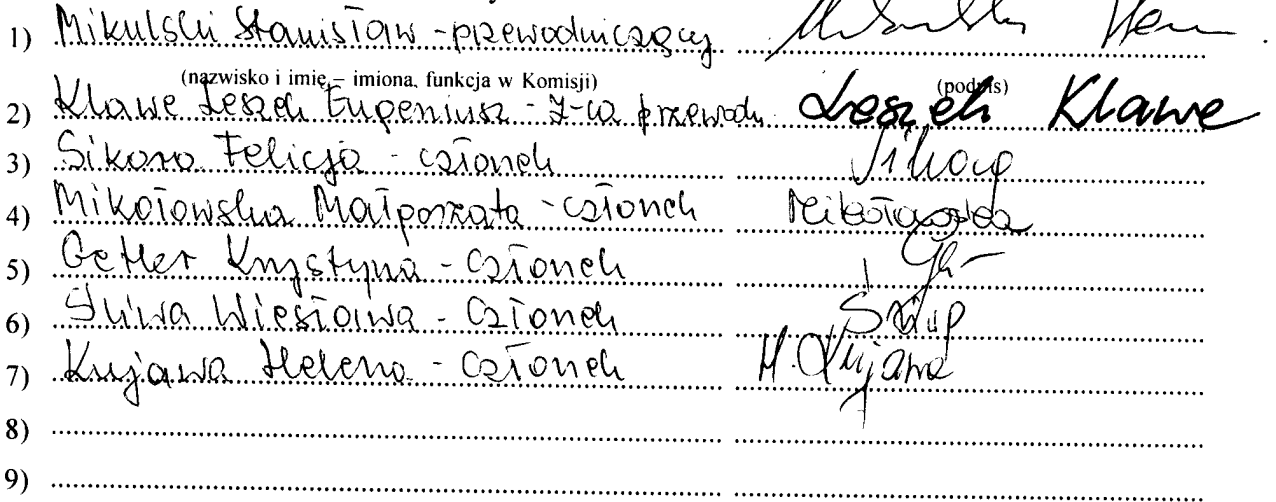 1) Mikulski Stanisław - przewodniczący
(nazwisko i imię – imiona, funkcja w Komisji) (podpis)
2) Klawe Leszek Eugeniusz - Z-ca przewodn. Leszek Klawe
3) Sikora Felicja - członek Sikora
4) Mikołowska Małgorzata - członek Mikołowska
5) Getler Krystyna - członek
6) Śliwa Wiesława - członek
7) Kujawa Helena - członek H. Kujawa
8)
9)